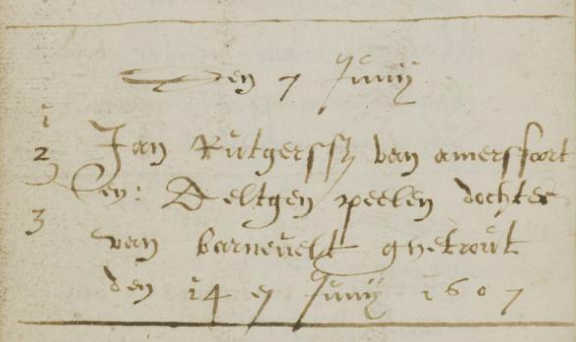 Den 7 Junij
1
2
3
Jan Rutgerssz van amersfoort
en: Deltgen peelen dochter
van barnevelt ghetrout
den 14 en Junij 1607